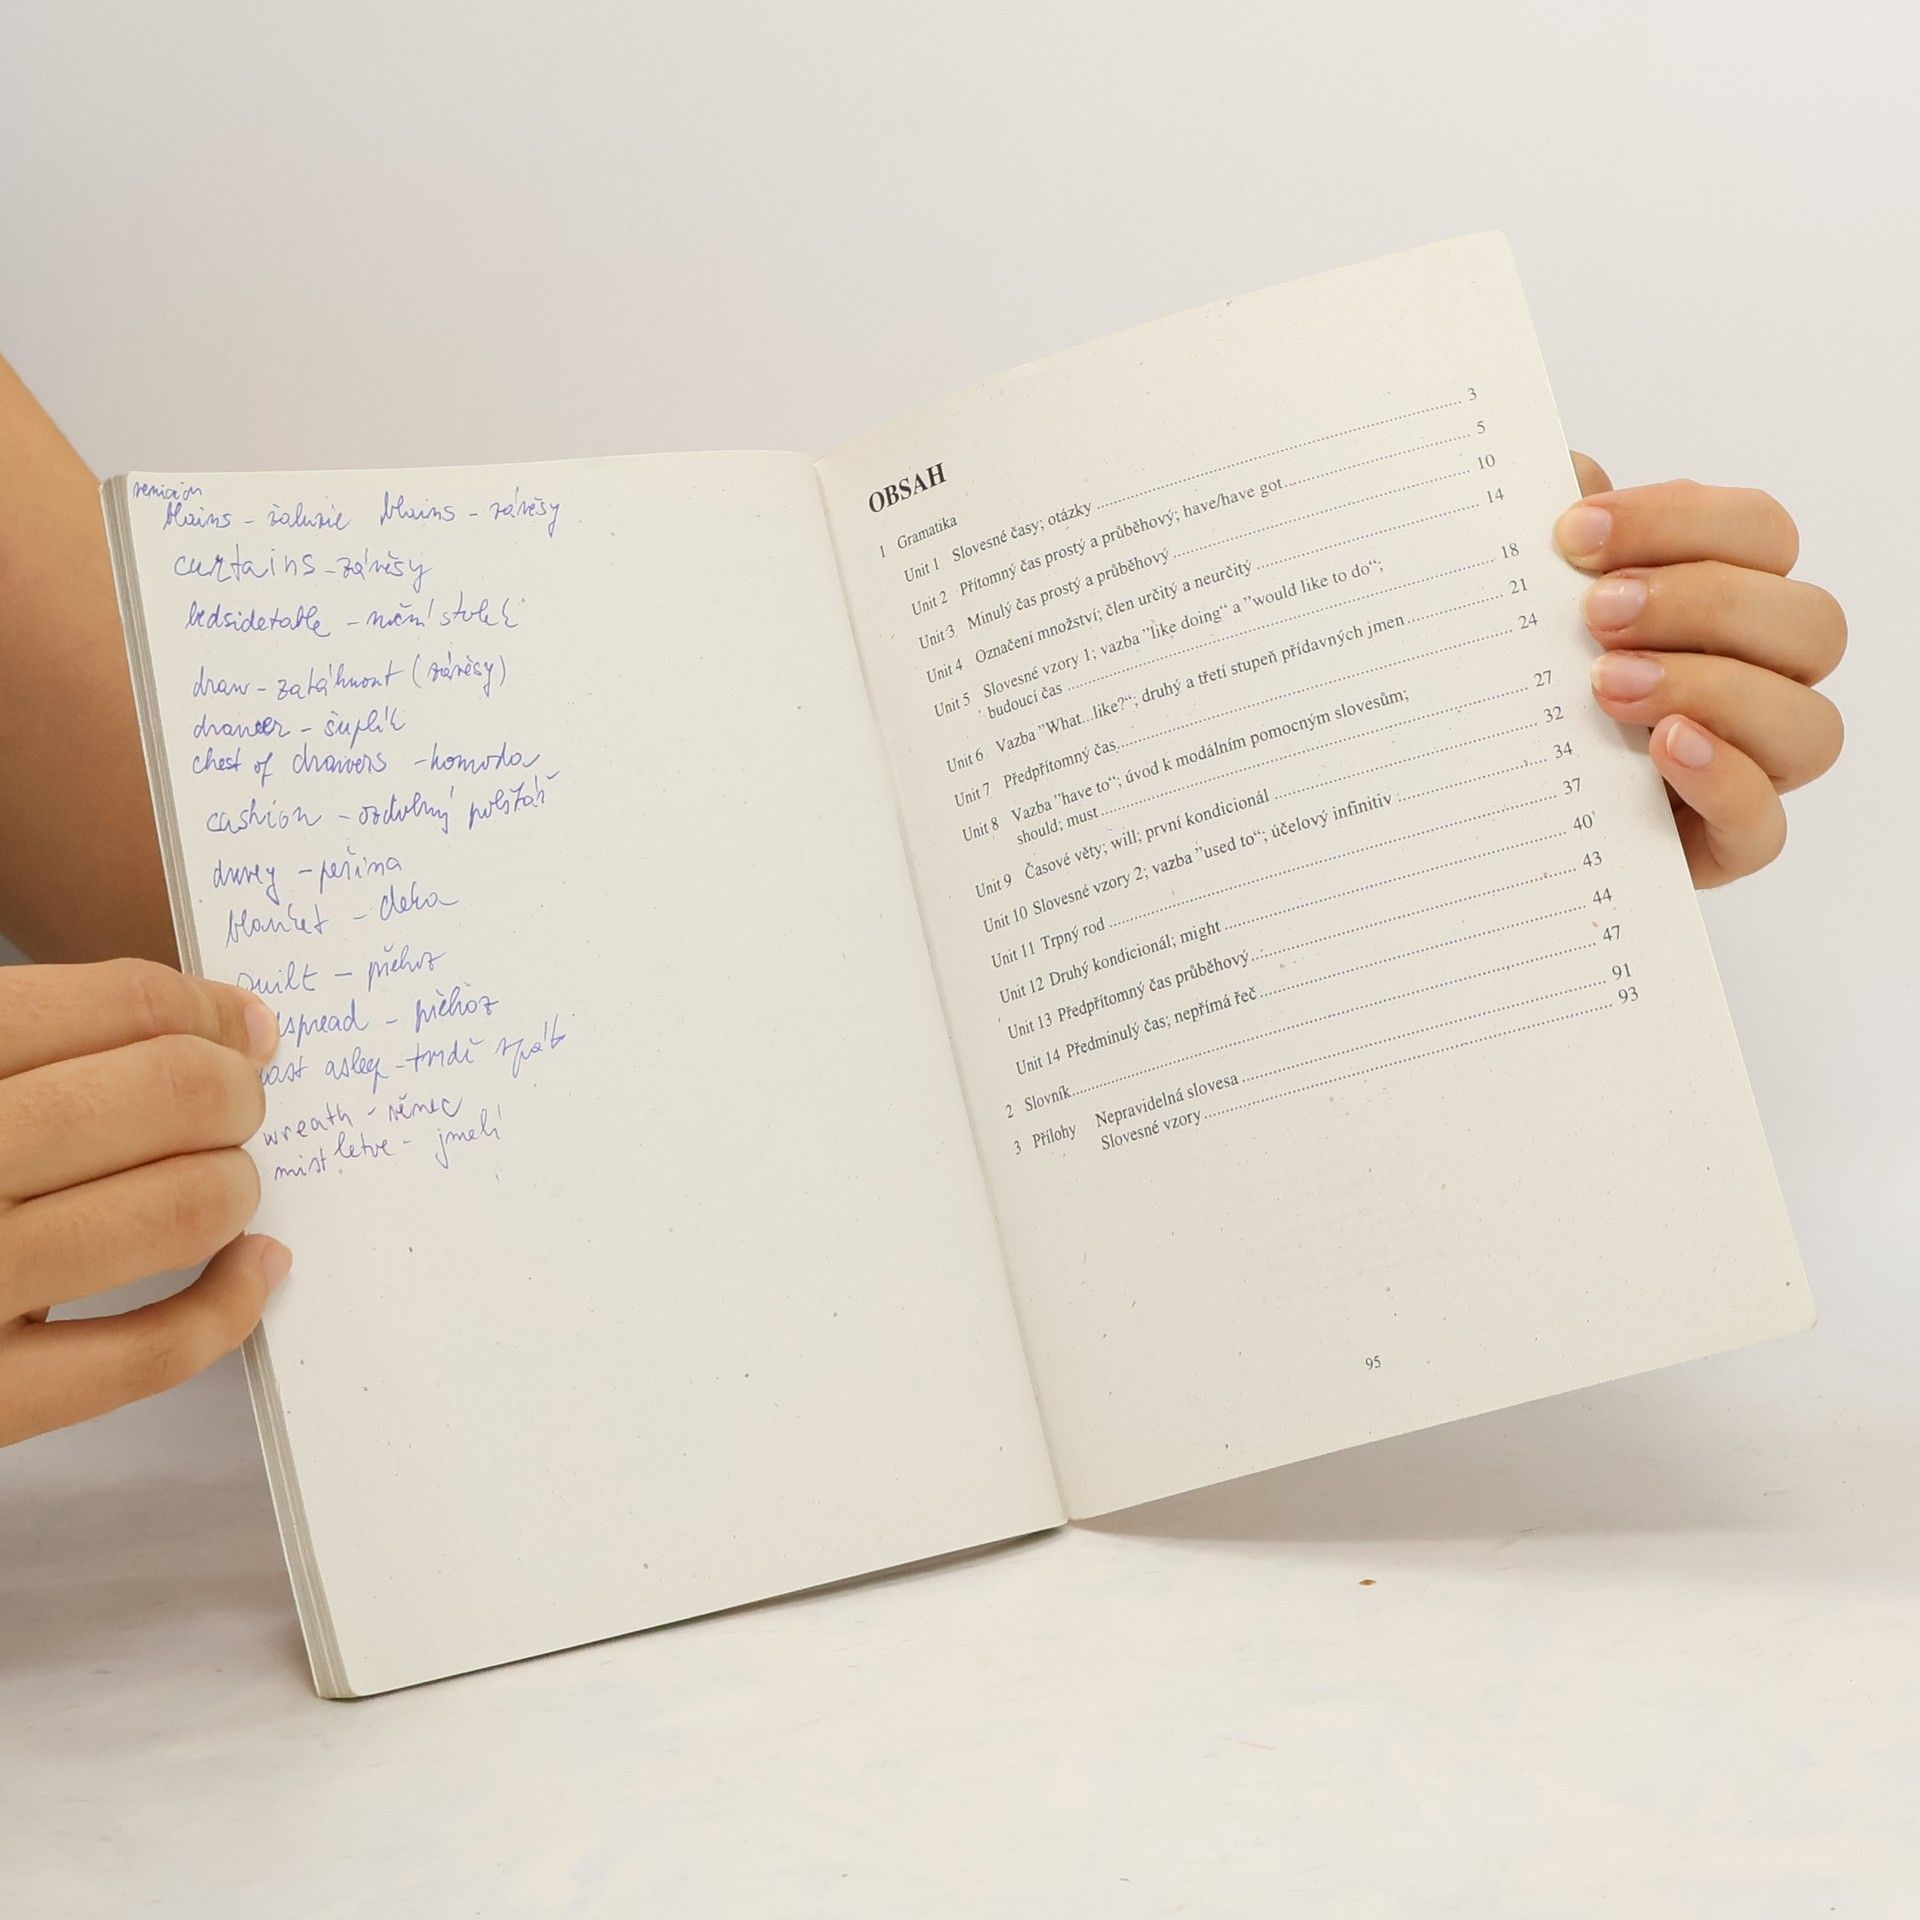 blains - žaluzie blains - závěsy
curtains - závěsy
bedsidetable - noční stolek
draw - zatáhnout (závěsy)
drawer - šuplík
chest of drawers - komoda
cashion - ozdobný polštář
duvey - peřina
blanket - deka
quilt - přehoz
spread - přehoz
ast asleep - tvrdě spát
wreath - věnec
mistletve - jmelí
OBSAH
1 Gramatika
Unit 1 Slovesné časy; otázky 3
Unit 2 Přítomný čas prostý a průběhový; have/have got 5
Unit 3 Minulý čas prostý a průběhový 10
Unit 4 Označení množství; člen určitý a neurčitý 14
Unit 5 Slovesné vzory 1; vazba ”like doing“ a ”would like to do“;
budoucí čas 18
Unit 6 Vazba ”What...like?“; druhý a třetí stupeň přídavných jmen 21
Unit 7 Předpřítomný čas 24
Unit 8 Vazba ”have to“; úvod k modálním pomocným slovesům;
should; must 27
Unit 9 Časové věty; will; první kondicionál 32
Unit 10 Slovesné vzory 2; vazba ”used to“; účelový infinitiv 34
Unit 11 Trpný rod 37
Unit 12 Druhý kondicionál; might 40
Unit 13 Předpřítomný čas průběhový 43
Unit 14 Předminulý čas; nepřímá řeč 44
2 Slovník 47
3 Přílohy Nepravidelná slovesa 91
Slovesné vzory 93
95